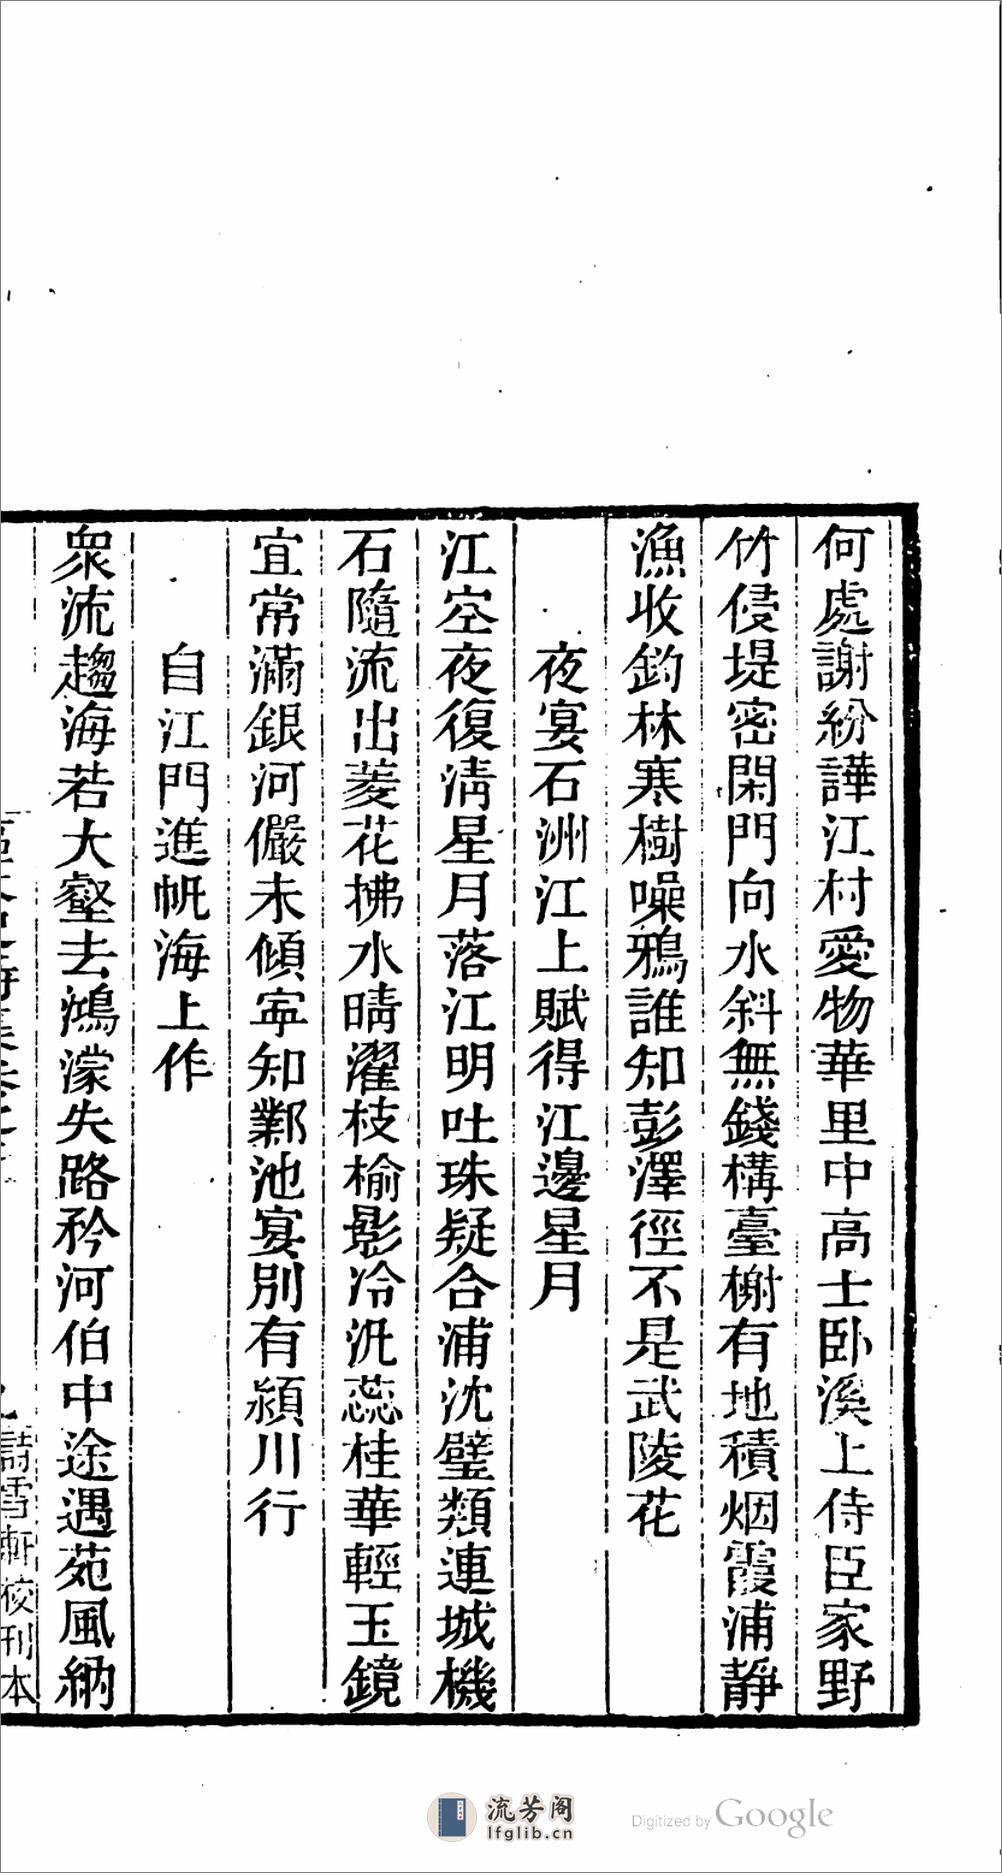 何處謝紛譁江村愛物華里中高士卧溪上侍臣家野
竹侵堤密閑門向水斜無錢構臺榭有地積烟霞浦靜
漁收釣林寒樹噪鴉誰知彭澤徑不是武陵花
夜宴石洲江上賦得江邊星月
江空夜復淸星月落江明吐珠疑合浦沈璧類連城機
石隨流出菱花拂水晴濯枝榆影冷汎蕊桂華輕玉鏡
宜常滿銀河儼未傾寧知鄴池宴別有潁川行
自江門進帆海上作
衆流趨海若大壑去鴻濛失路矜河伯中途遇苑風納
詩雪軒校刊本
流芳阁
lfglib.cn
Digitized by Google